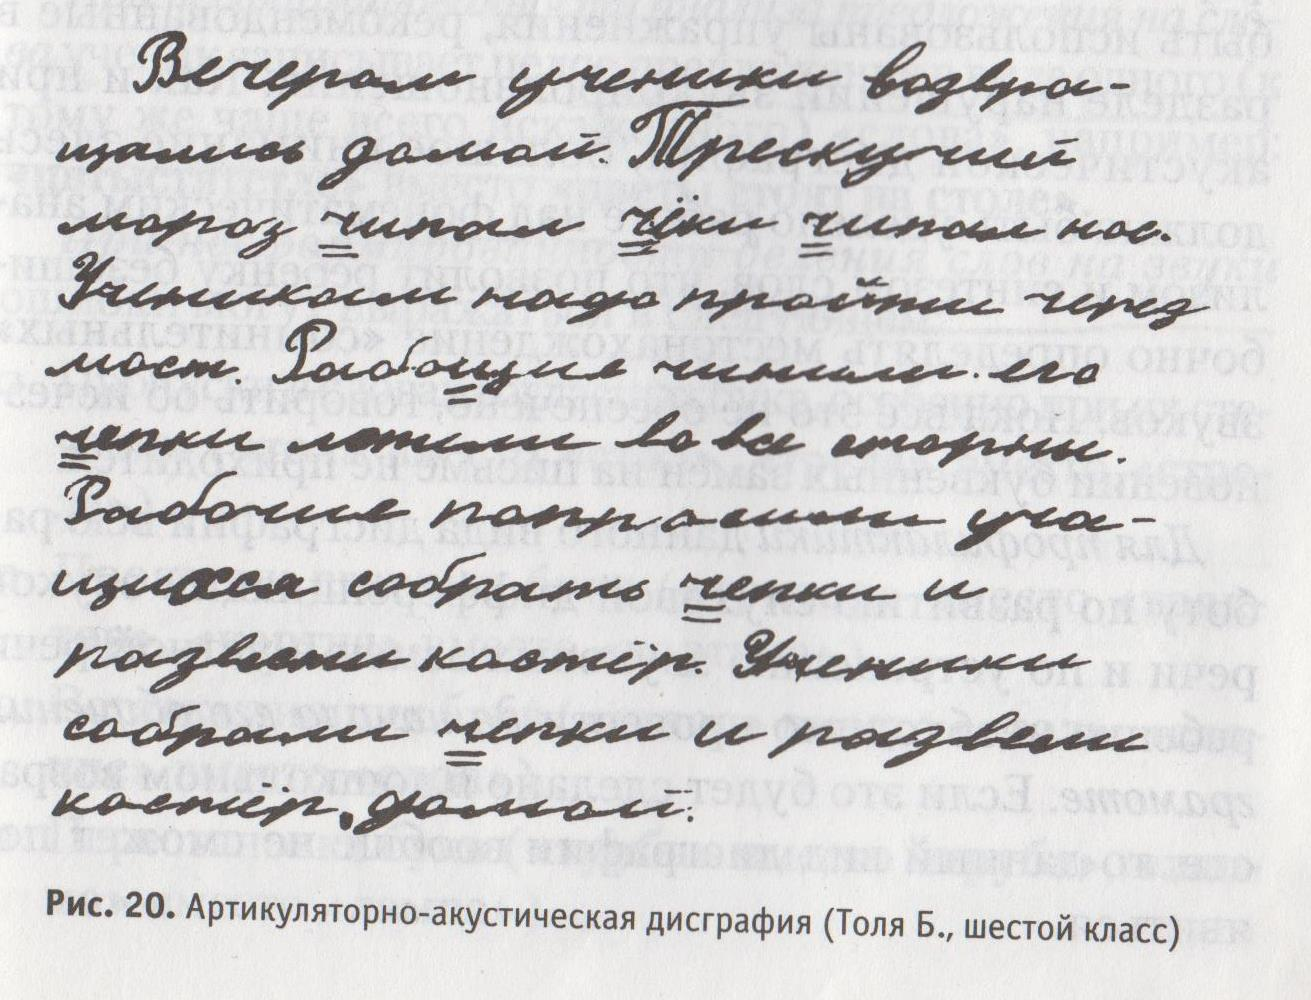 Вечером ученики возвра-
щались домой. Трескучий
мороз чипал чёки чипал нос.
Ученикам надо пройти через
мост. Рабощие чинили его
чепки летили во все стороны.
Рабочие попросили уча-
щихся собрать чепки и
развели костёр. Ученики
собрали чепки и развели
костёр. домой.
Рис. 20. Артикуляторно-акустическая дисграфия (Толя Б., шестой класс)